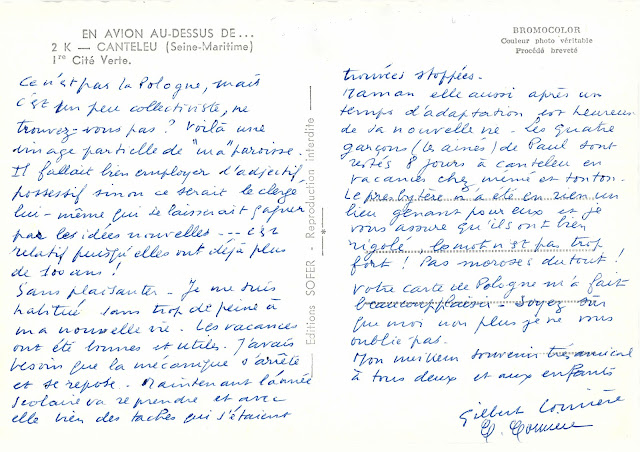 EN AVION AU-DESSUS DE...
2 K — CANTELEU (Seine-Maritime)
1re Cité Verte.
Ce n'est pas la Pologne, mais
c'est un peu collectiviste, ne
trouvez-vous pas ? Voilà une
image partielle de "ma" paroisse.
Il fallait bien employer l'adjectif
possessif sinon ce serait le clergé
lui-même qui se laisserait gagner
par les idées nouvelles --- c'est
relatif puisqu'elles ont déjà plus
de 100 ans !
Sans plaisanter - Je me suis
habitué sans trop de peine à
ma nouvelle vie. Les vacances
ont été bonnes et utiles. J'avais
besoin que la mécanique s'arrête
et se repose. Maintenant l'année
scolaire va reprendre et avec
elle bien des taches qui s'étaient
Editions SOFER - Reproduction interdite
BROMOCOLOR
Couleur photo véritable
Procédé breveté
trouvées stoppées.
Maman elle aussi après un
temps d'adaptation est heureuse
de sa nouvelle vie - Les quatre
garçons (les aînés) de Paul sont
restés 8 jours à Canteleu en
vacances chez mémé et tonton.
Le presbytère n'a été en rien un
lieu gênant pour eux et je
vous assure qu'ils ont bien
rigolé, le mot n'est pas trop
fort ! Pas moroses du tout !
Votre carte de Pologne m'a fait
beaucoup plaisir - Soyez sûrs
que moi non plus je ne vous
oublie pas.
Mon meilleur souvenir très amical
à tous deux et aux enfants
Gilbert